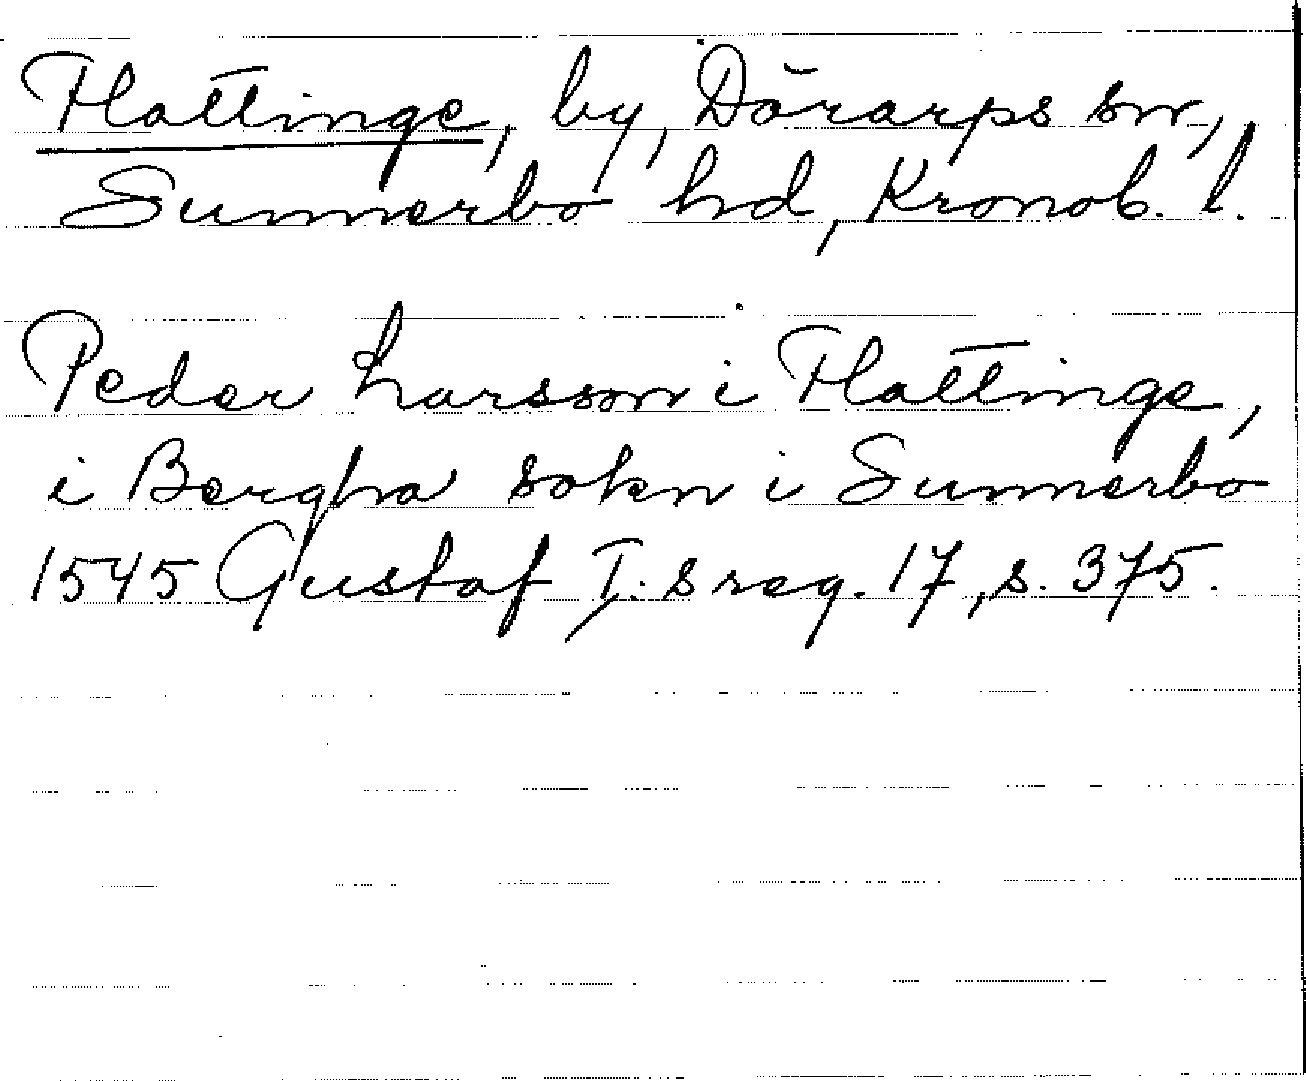 Flattinge, by, Dörarps sn,
Sunnerbo hd, Kronob. l.
Peder Larsson i Flattinge,
i Bergha sokn i Sunnerbo
1545 Gustaf I:s reg. 17, s. 375.